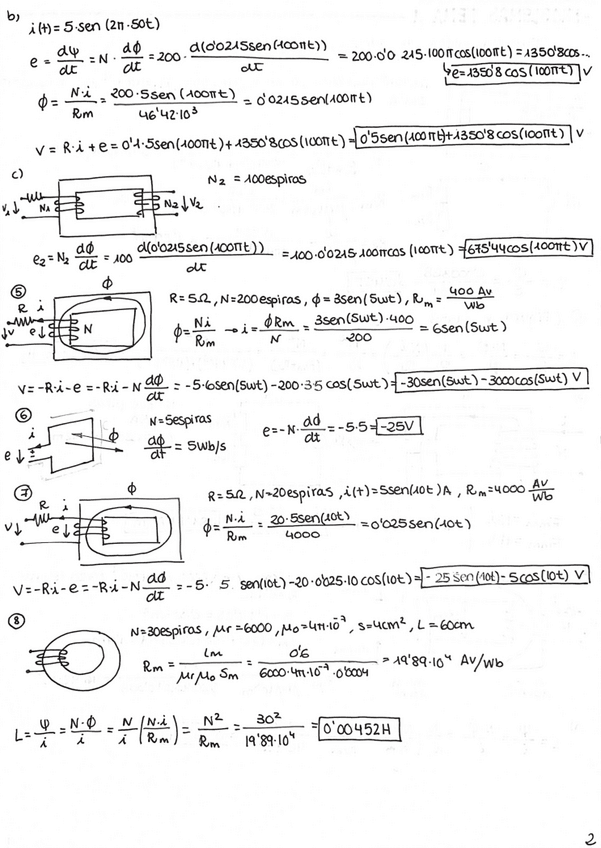 b)
i(t) = 5·sen(2π·50t)
e = dψ/dt = N·dϕ/dt = 200·d(0'0215sen(100πt))/dt = 200·0'0 215·100πcos(100πt) = 1350'8cos...
↳ e=1350'8 cos(100πt) V
ϕ = N·i/Rm = 200·5sen(100πt)/46'42·10³ = 0'0215sen(100πt)
V = R·i + e = 0'1·5sen(100πt) + 1350'8cos(100πt) = 0'5sen(100πt)+1350'8 cos(100πt) V
c)
N2 = 100espiras
V1 N1 N2 V2
e2 = N2 dϕ/dt = 100 d(0'0215sen(100πt))/dt = 100·0'0215·100πcos(100πt) = 675'44cos(100πt) V
⑤
ϕ
R i
V e N
R=5Ω, N=200espiras, ϕ=3sen(5wt), Rm = 400 Av/Wb
ϕ = Ni/Rm → i = ϕRm/N = 3sen(5wt)·400/200 = 6sen(5wt)
V = -R·i - e = -R·i - N dϕ/dt = -5·6sen(5wt) - 200·3·5 cos(5wt) = -30sen(5wt) - 3000cos(5wt) V
⑥
i
e ϕ
N=5espiras
dϕ/dt = 5Wb/s
e = -N·dϕ/dt = -5·5 = -25V
⑦
ϕ
R i
V e
R=5Ω, N=20espiras, i(t)=5sen(10t)A, Rm=4000 Av/Wb
ϕ = N·i/Rm = 20·5sen(10t)/4000 = 0'025sen(10t)
V = -R·i - e = -R·i - N dϕ/dt = -5· 5 sen(10t) - 20·0'025·10 cos(10t) = -25 sen(10t) - 5cos(10t) V
⑧
N=30espiras, μr=6000, μo=4π·10⁻⁷, S=4cm², L=60cm
Rm = Lm/μrμo Sm = 0'6/6000·4π·10⁻⁷·0'0004 = 19'89·10⁴ Av/Wb
L = ψ/i = N·ϕ/i = N/i (N·i/Rm) = N²/Rm = 30²/19'89·10⁴ = 0'00452H
2